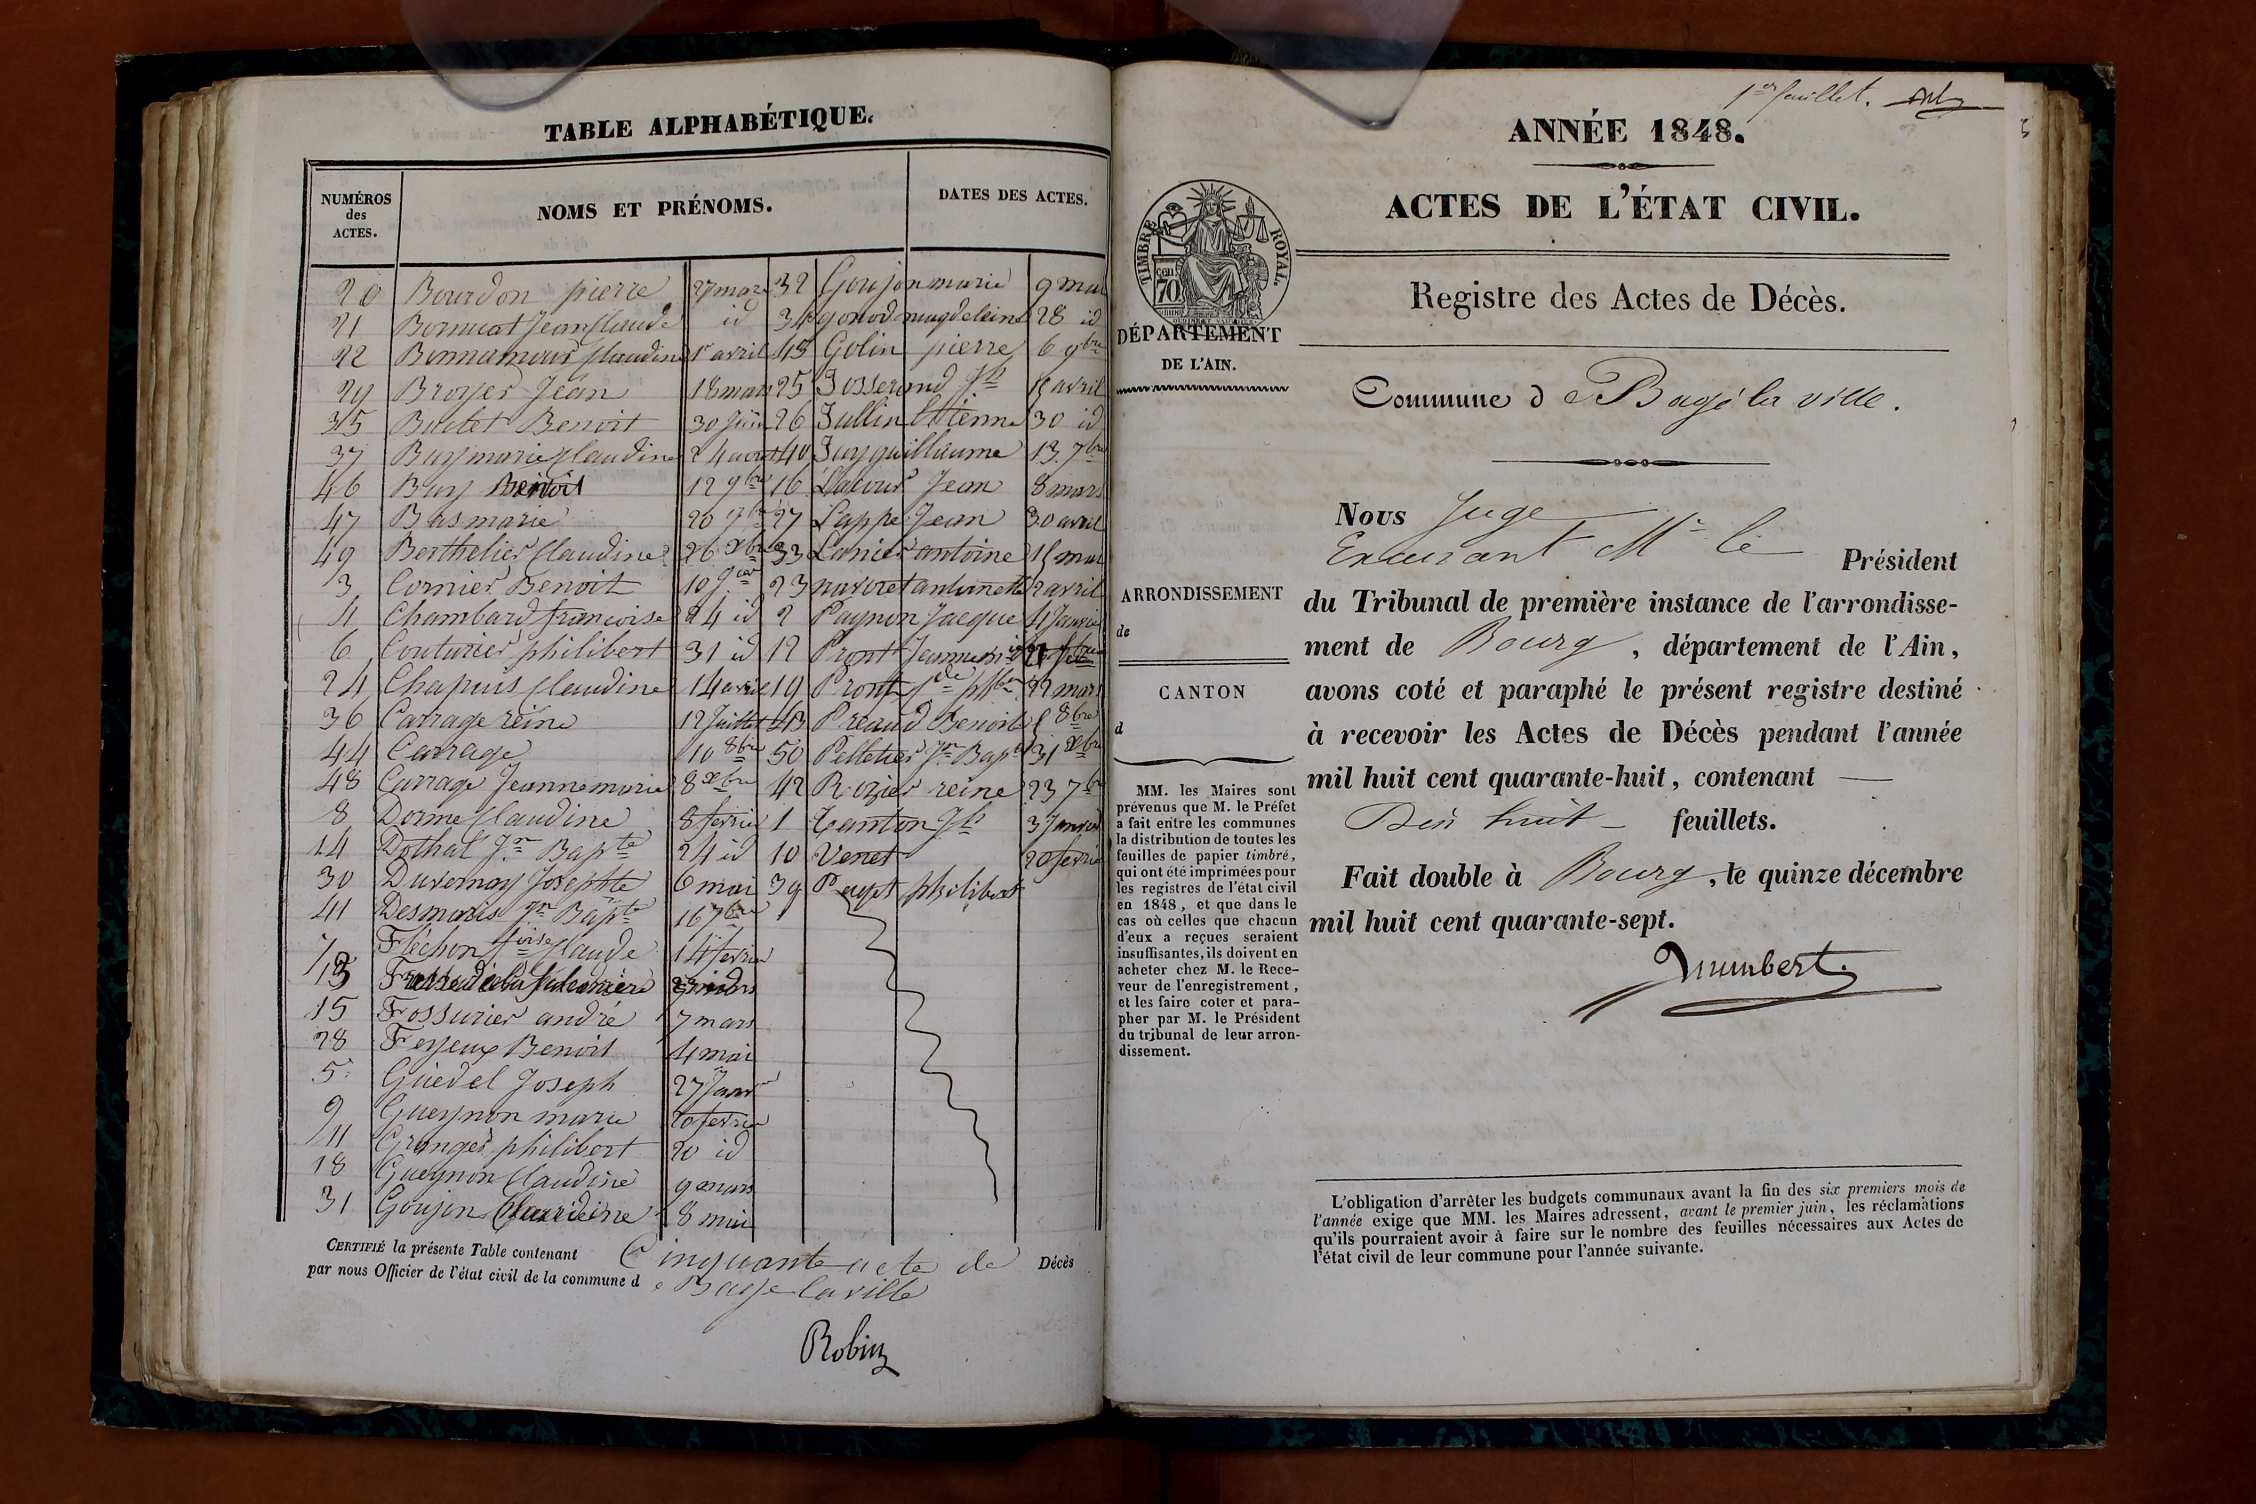 TABLE ALPHABÉTIQUE.
NUMÉROS
des
ACTES.
NOMS ET PRÉNOMS.
DATES DES ACTES.
20 Bourdon pierre 27 mars
21 Bornuat Jean Claude id
22 Bonnamour Claudine 1er avril
29 Broyer Jean 18 mars
35 Buclet Benoit 30 Juin
37 Buy marie Claudine 24 aout
46 Buy Benoit 12 9bre
47 Bas marie 20 9bre
49 Berthelier Claudine 26 xbre
3 Cornier Benoit 10 Jer
4 Chambard francoise 24 id
6 Couturier philibert 31 id
24 Chapuis Claudine 14 avril
36 Carrage reine 12 Juillet
44 Carrage 10 8bre
48 Carrage Jeanne marie 8 xbre
8 Dorme Claudine 8 fevrier
14 Dothal Jn Bapte 24 id
30 Duvernay Josephte 6 mai
41 Desmaris Jn Bapte 16 7bre
7 Fléchon Claude 14 fevrier
13
15 Fossurier andré 7 mars
28 Feyeux Benoit 4 mai
5 Guedel Joseph 27 Janvr
9 Gueynon marie 20 fevrier
11 Granger philibert 20 id
18 Gueynon Claudine 9 mars
31 Goujon Claudine 8 mai
32 Goujon marie 9 mai
34 gonod magdeleine 28 id
45 Golin pierre 6 9bre
25 Josserand Jh 15 avril
26 Jullin Etienne 30 id
40 Juy guillaume 13 7bre
16 Lacour Jean 8 mars
27 Lappe Jean 30 avril
33 Lanier antoine 15 mai
23 navoret antoinette 2 avril
2 Paynon Jacque 4 Janvier
12 Pront Jeanne
19 Pront 22 mars
43 Preaud Benoit 5 8bre
50 Pelletier Jn Bapte 31 xbre
42 Rozier reine 23 7bre
1 Tanton Jh 3 Janvier
10 Venet 20 fevrier
39 Peyet philibert
CERTIFIÉ la présente Table contenant Cinquante acte de Décès
par nous Officier de l'état civil de la commune d e Bage la ville
Robin
1er feuillet.
ANNÉE 1848.
ACTES DE L'ÉTAT CIVIL.
TIMBRE ROYAL.
cen
70
DÉPARTEMENT
DE L'AIN.
Registre des Actes de Décès.
Commune d e Bagé la ville.
Nous Juge
Excusant Mr le Président
du Tribunal de première instance de l'arrondisse-
ment de Bourg, département de l'Ain,
avons coté et paraphé le présent registre destiné
à recevoir les Actes de Décès pendant l'année
mil huit cent quarante-huit, contenant
Dix huit feuillets.
Fait double à Bourg, le quinze décembre
mil huit cent quarante-sept.
ARRONDISSEMENT
de
CANTON
d
MM. les Maires sont
prévenus que M. le Préfet
a fait entre les communes
la distribution de toutes les
feuilles de papier timbré,
qui ont été imprimées pour
les registres de l'état civil
en 1848, et que dans le
cas où celles que chacun
d'eux a reçues seraient
insuffisantes, ils doivent en
acheter chez M. le Rece-
veur de l'enregistrement,
et les faire coter et para-
pher par M. le Président
du tribunal de leur arron-
dissement.
L'obligation d'arrêter les budgets communaux avant la fin des six premiers mois de
l'année exige que MM. les Maires adressent, avant le premier juin, les réclamations
qu'ils pourraient avoir à faire sur le nombre des feuilles nécessaires aux Actes de
l'état civil de leur commune pour l'année suivante.